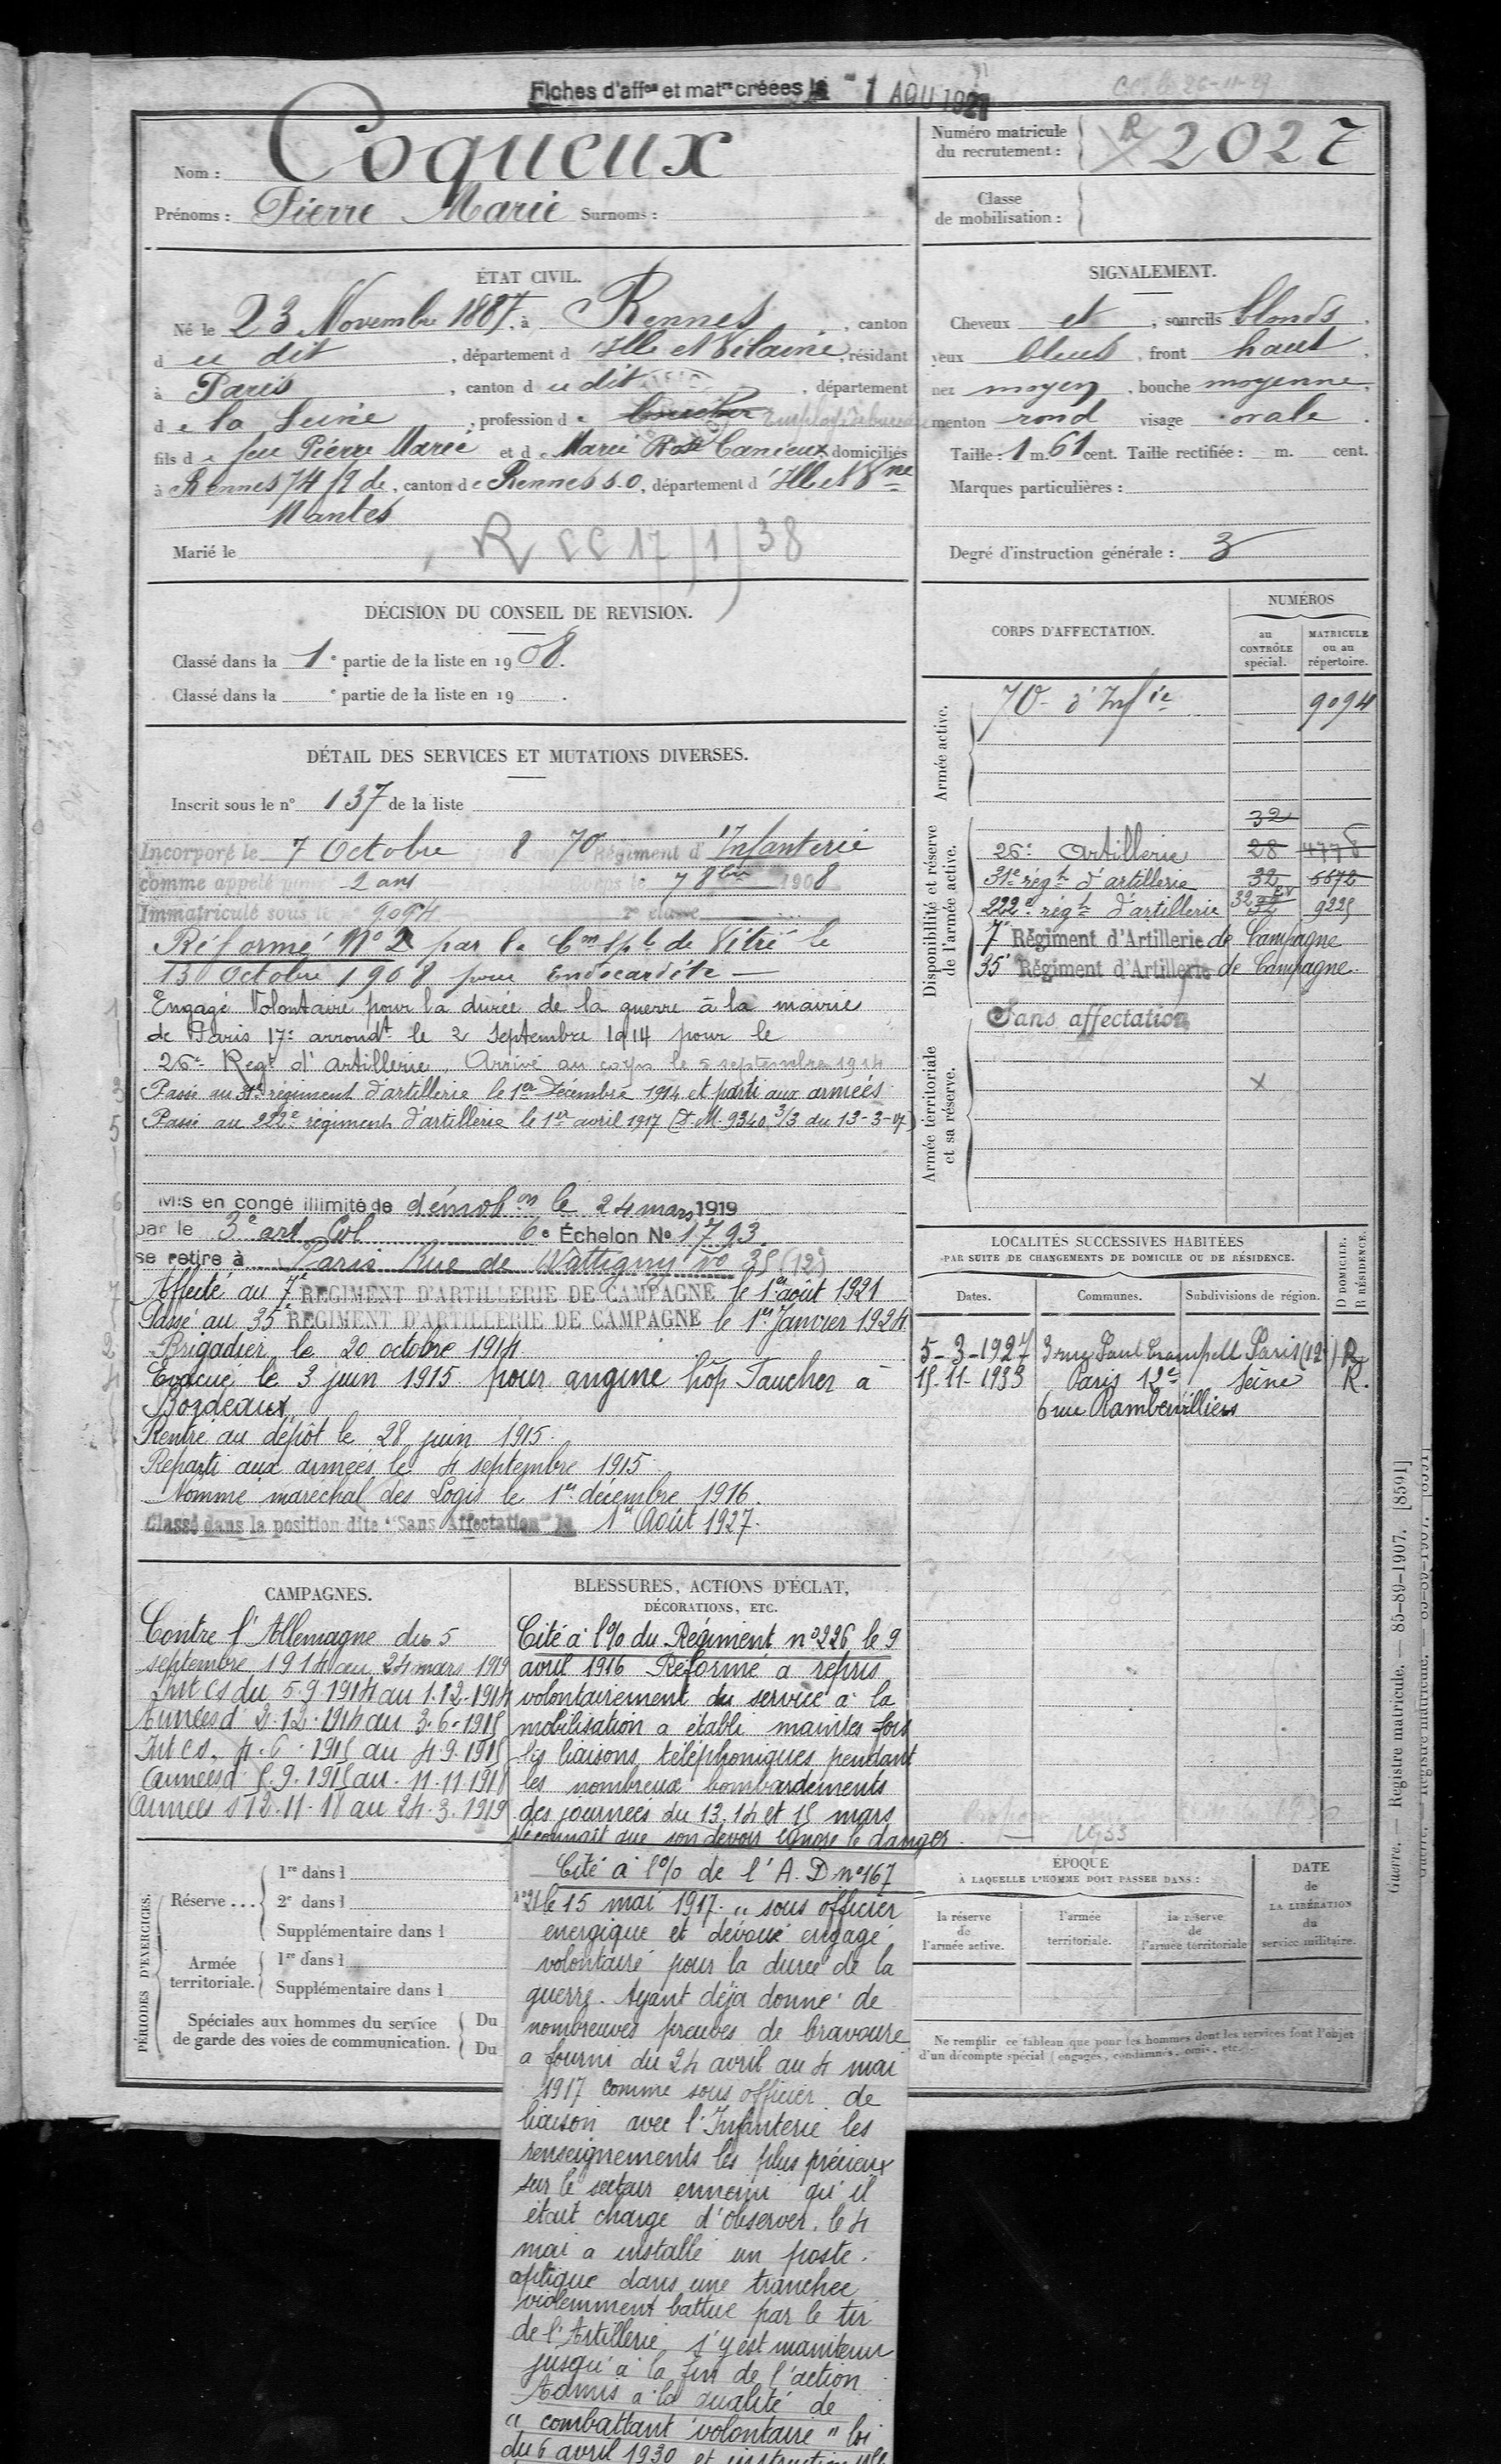 Fiches d'affon et matre créées le 1 AOU 1927
Nom : Coqueux
Prénoms : Pierre Marie Surnoms :
Numéro matricule du recrutement : R 2027
Classe de mobilisation :
ÉTAT CIVIL.
Né le 23 Novembre 1887, à Rennes, canton
du dit, département d'Ille et Vilaine, résidant
à Paris, canton du dit, département
de la Seine, profession de
fils de feu Pierre Marie et de Marie Rose Canieux domiciliés
à Rennes 74 R de, canton de Rennes S.O, département d'Ille et Vne
Nantes
Marié le
R CC 17/1/38
SIGNALEMENT.
Cheveux et, sourcils blonds,
yeux bleus, front haut,
nez moyen, bouche moyenne,
menton rond visage ovale.
Taille : 1 m. 61 cent. Taille rectifiée : m. cent.
Marques particulières :
Degré d'instruction générale : 3
DÉCISION DU CONSEIL DE REVISION.
Classé dans la 1e partie de la liste en 1908.
Classé dans la e partie de la liste en 19 .
DÉTAIL DES SERVICES ET MUTATIONS DIVERSES.
Inscrit sous le no 137 de la liste
Incorporé le 7 Octobre 8 70 Régiment d'Infanterie
comme appelé pour 2 ans 7 8bre 1908
Immatriculé sous le no 9094 2e classe
Réformé No 2 par la Con Sple de Vitré le
13 Octobre 1908 pour Endocardite —
Engagé Volontaire pour la durée de la guerre à la mairie
de Paris 17e arrondt le 2 Septembre 1914 pour le
26e Regt d'artillerie. Arrivé au corps le 5 septembre 1914
Passé au 31e régiment d'artillerie le 1er Décembre 1914 et parti aux armées
Passé au 222e régiment d'artillerie le 1er avril 1917 (D.M. 9340 3/3 du 13-3-17)
Mis en congé illimité de démobon le 24 mars 1919
par le 3e art Col 6e Échelon No 1793.
se retire à Paris Rue de Wattigny No 35 (12e)
Affecté au 7e REGIMENT D'ARTILLERIE DE CAMPAGNE le 1er août 1921
Passé au 35e REGIMENT D'ARTILLERIE DE CAMPAGNE le 1er Janvier 1924
Brigadier le 20 octobre 1914
Evacué le 3 juin 1915 pour angine hôp Taucher à
Bordeaux
Rentré au dépôt le 28 juin 1915.
Reparti aux armées le 4 septembre 1915
Nommé maréchal des Logis le 1er décembre 1916.
Classé dans la position dite "Sans Affectation" le 1er Août 1927.
CORPS D'AFFECTATION.
NUMÉROS
au CONTRÔLE spécial.
MATRICULE ou au répertoire.
Armée active.
70e d'Infie 9094
Disponibilité et réserve de l'armée active.
32
26e Artillerie 28 4778
31e régt d'artillerie 32 5572
222e régt d'artillerie 32 9225
7e Régiment d'Artillerie de Campagne
35e Régiment d'Artillerie de Campagne
Armée territoriale et sa réserve.
Sans affectation
X
LOCALITÉS SUCCESSIVES HABITÉES
PAR SUITE DE CHANGEMENTS DE DOMICILE OU DE RÉSIDENCE.
Dates. Communes. Subdivisions de région. D DOMICILE. R RÉSIDENCE.
5-3-1927 3 rue Paul Crampell Paris (12e) R
15-11-1933 Paris 12e Seine R.
6 rue Rambervilliers
CAMPAGNES.
Contre l'Allemagne du 5
septembre 1914 au 24 mars 1919
Int CS du 5.9.1914 au 1.12.1914
Armées d 2.12.1914 au 3.6.1915
Int CS. 4.6.1915 au 4.9.1915
Armées d 5.9.1915 au 11.11.1918
Armées d 12.11.18 au 24.3.1919
BLESSURES, ACTIONS D'ÉCLAT,
DÉCORATIONS, ETC.
Cité à l'% du Régiment no 226 le 9
avril 1916 Réformé a repris
volontairement du service à la
mobilisation a établi maintes fois
les liaisons téléphoniques pendant
les nombreux bombardements
des journées du 13.14 et 15 mars
Ne connaît que son devoir ignore le danger.
Cité à l'% de l'A.D no 167
le 15 mai 1917. " sous officier
energique et dévoué engagé
volontaire pour la durée de la
guerre. Ayant déja donné de
nombreuses preuves de bravoure
a fourni du 24 avril au 4 mai
1917 comme sous officier de
liaison avec l'Infanterie les
renseignements les plus précieux
sur le secteur ennemi qu'il
était chargé d'observer. le 4
mai a installé un poste
optique dans une tranchée
violemment battue par le tir
de l'Artillerie, s'y est maintenu
jusqu'à la fin de l'action
Admis à la qualité de
" combattant volontaire " loi
du 6 avril 1930 et instruction
PÉRIODES D'EXERCICES.
Réserve ... 1re dans l
2e dans l
Supplémentaire dans l
Armée territoriale. 1re dans l
Supplémentaire dans l
Spéciales aux hommes du service de garde des voies de communication. Du
Du
ÉPOQUE
À LAQUELLE L'HOMME DOIT PASSER DANS :
la réserve de l'armée active.
l'armée territoriale.
la réserve de l'armée territoriale
DATE de LA LIBÉRATION du service militaire.
Ne remplir ce tableau que pour les hommes dont les services font l'objet
d'un décompte spécial (engagés, condamnés, omis, etc.).
Guerre. — Registre matricule. — 85-89-1907. [8591]